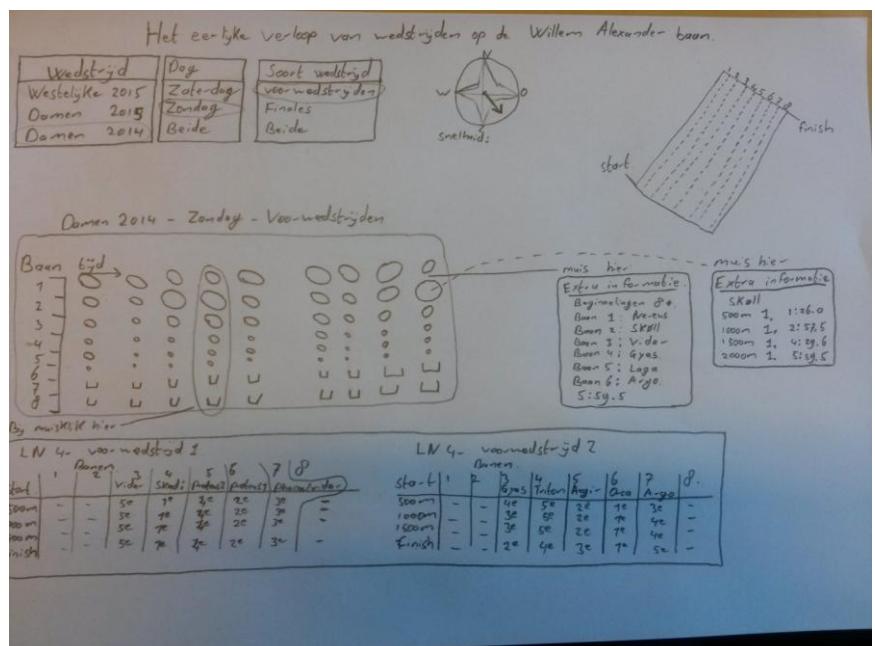 Het eerlijke verloop van wedstrijden op de Willem Alexander baan.
Wedstrijd
Westelijke 2015
Damen 2015
Damen 2014
Dag
Zaterdag
Zondag
Beide
Soort wedstrijd
voorwedstrijden
Finales
Beide
N
W O
Z
snelheid:
1 2 3 4 5 6 7 8
finish
start
Damen 2014 - Zondag - Voorwedstrijden
Baan tijd
1
2
3
4
5
6
7
8
By muisklik hier
muis hier
Extra informatie
Beginnelingen 8+
Baan 1: Nereus
Baan 2: Skøll
Baan 3: Vidar
Baan 4: Gyas
Baan 5: Laga
Baan 6: Argo
5:59.5
muis hier
Extra informatie
Skøll
500m 1, 1:26.0
1000m 1, 2:57.5
1500m 1, 4:29.6
2000m 1, 5:59.5
LN 4- voorwedstrijd 1
Banen
1 2 3 4 5 6 7 8
start Vidar Skadi
500m - - 5e 1e 4e 2e 3e -
1000m - - 5e 1e 4e 2e 3e -
1500m - - 5e 1e 4e 2e 3e -
finish - - 5e 1e 4e 2e 3e -
LN 4- voorwedstrijd 2
Banen.
1 2 3 4 5 6 7 8.
start Gyas Triton Aegir Orca Argo
500m - - 4e 5e 2e 1e 3e -
1000m - - 3e 5e 2e 1e 4e -
1500m - - 3e 5e 2e 1e 4e -
finish - - 2e 4e 3e 1e 5e -